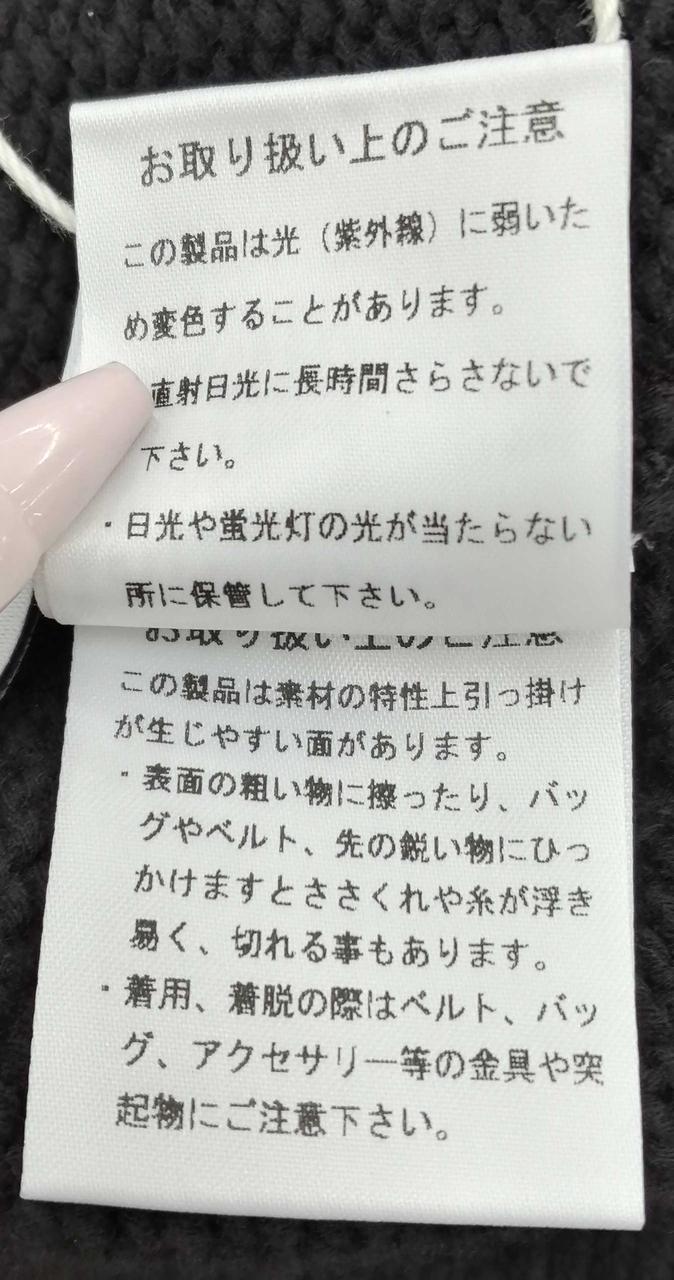 お取り扱い上のご注意
この製品は光（紫外線）に弱いた
め変色することがあります。
直射日光に長時間さらさないで
下さい。
・日光や蛍光灯の光が当たらない
所に保管して下さい。
お取り扱い上のご注意
この製品は素材の特性上引っ掛け
が生じやすい面があります。
・表面の粗い物に擦ったり、バッ
グやベルト、先の鋭い物にひっ
かけますとささくれや糸が浮き
易く、切れる事もあります。
・着用、着脱の際はベルト、バッ
グ、アクセサリー等の金具や突
起物にご注意下さい。